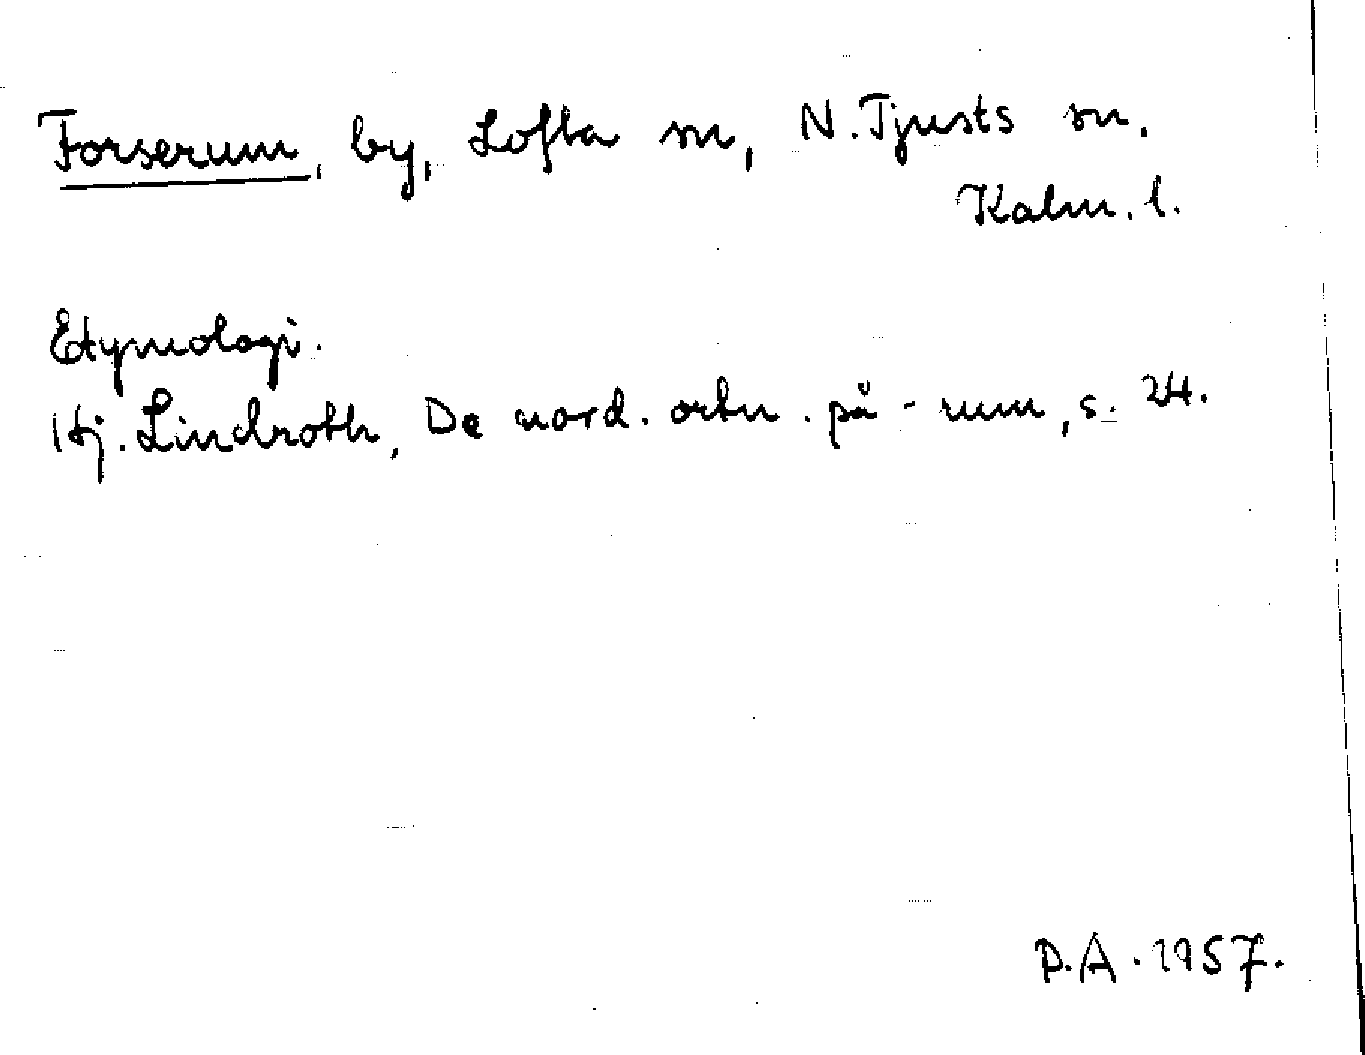 Forserum, by, Lofta sn, N. Tjusts sn.
Kalm. l.
Etymologi.
Hj. Lindroth, De nord. ortn. på -rum, s. 24.
P.A. 1957.